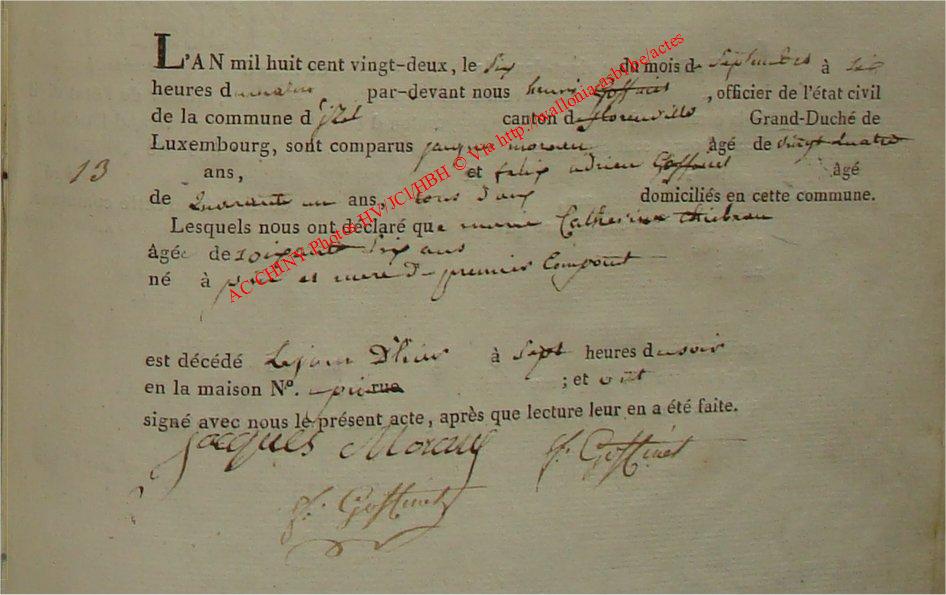 L'AN mil huit cent vingt-deux, le six du mois de Septembre à dix
heures du matin par-devant nous henri Goffinet, officier de l'état civil
de la commune d'izel canton de florenville Grand-Duché de
Luxembourg, sont comparus jacques moreau âgé de vingt quatre
13
ans, et felix adrien Goffinet âgé
de Quarante un ans, tous deux domiciliés en cette commune.
Lesquels nous ont déclaré que marie Catherine thiebeau
âgée de soixante dix ans
né à pere et mere du premier Comparant
est décédé Le jour D'hier à Sept heures du soir
en la maison No. rue ; et ont
signé avec nous le présent acte, après que lecture leur en a été faite.
Jacques Moreau f. Goffinet
h. Goffinet
AC CHINY Photos HV/JCl/HBH © Via http://wallonia-asbl.be/actes